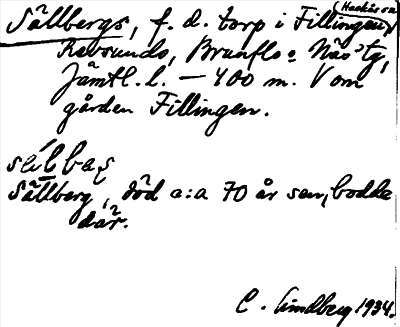 Sållbergs, f. d. torp i Fillingen,
Revsunds, Brunflo o Näs' tg,
Jämtl. l. — 400 m. V om
gården Fillingen.
Sållberg, död c:a 70 år sen, bodde
där.
C. Lindberg 1934.